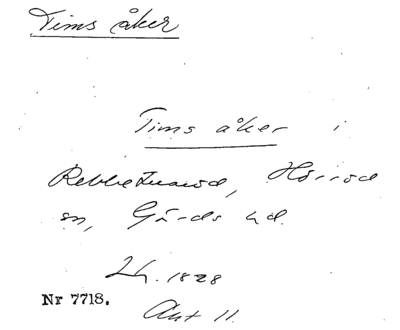 Tims åker
Tims åker i
Rebbetuaröd, Hörröd
sn, Gärds hd.
Lh. 1828
Nr 7718.
Akt 11.